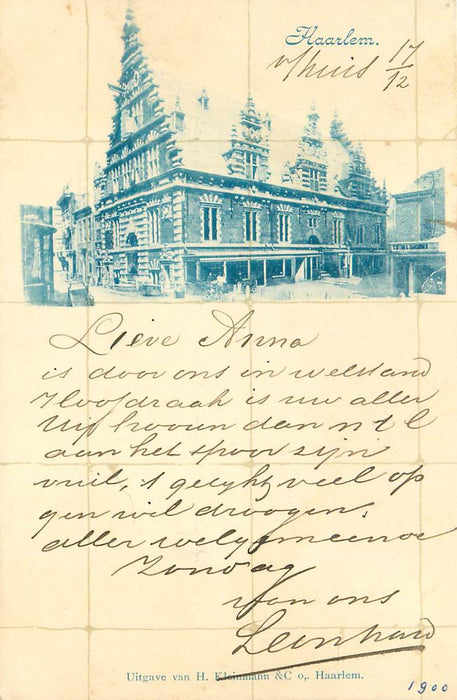 Haarlem.
v/huis 17/12
Lieve Anna
is door ons in welstand
is uw aller
dan
aan het spoor zijn
vuil, veel op
wil droogen.
aller welgemeende
Zondag
Van ons
Leonhard
Uitgave van H. Kleinmann & Co., Haarlem.
1900